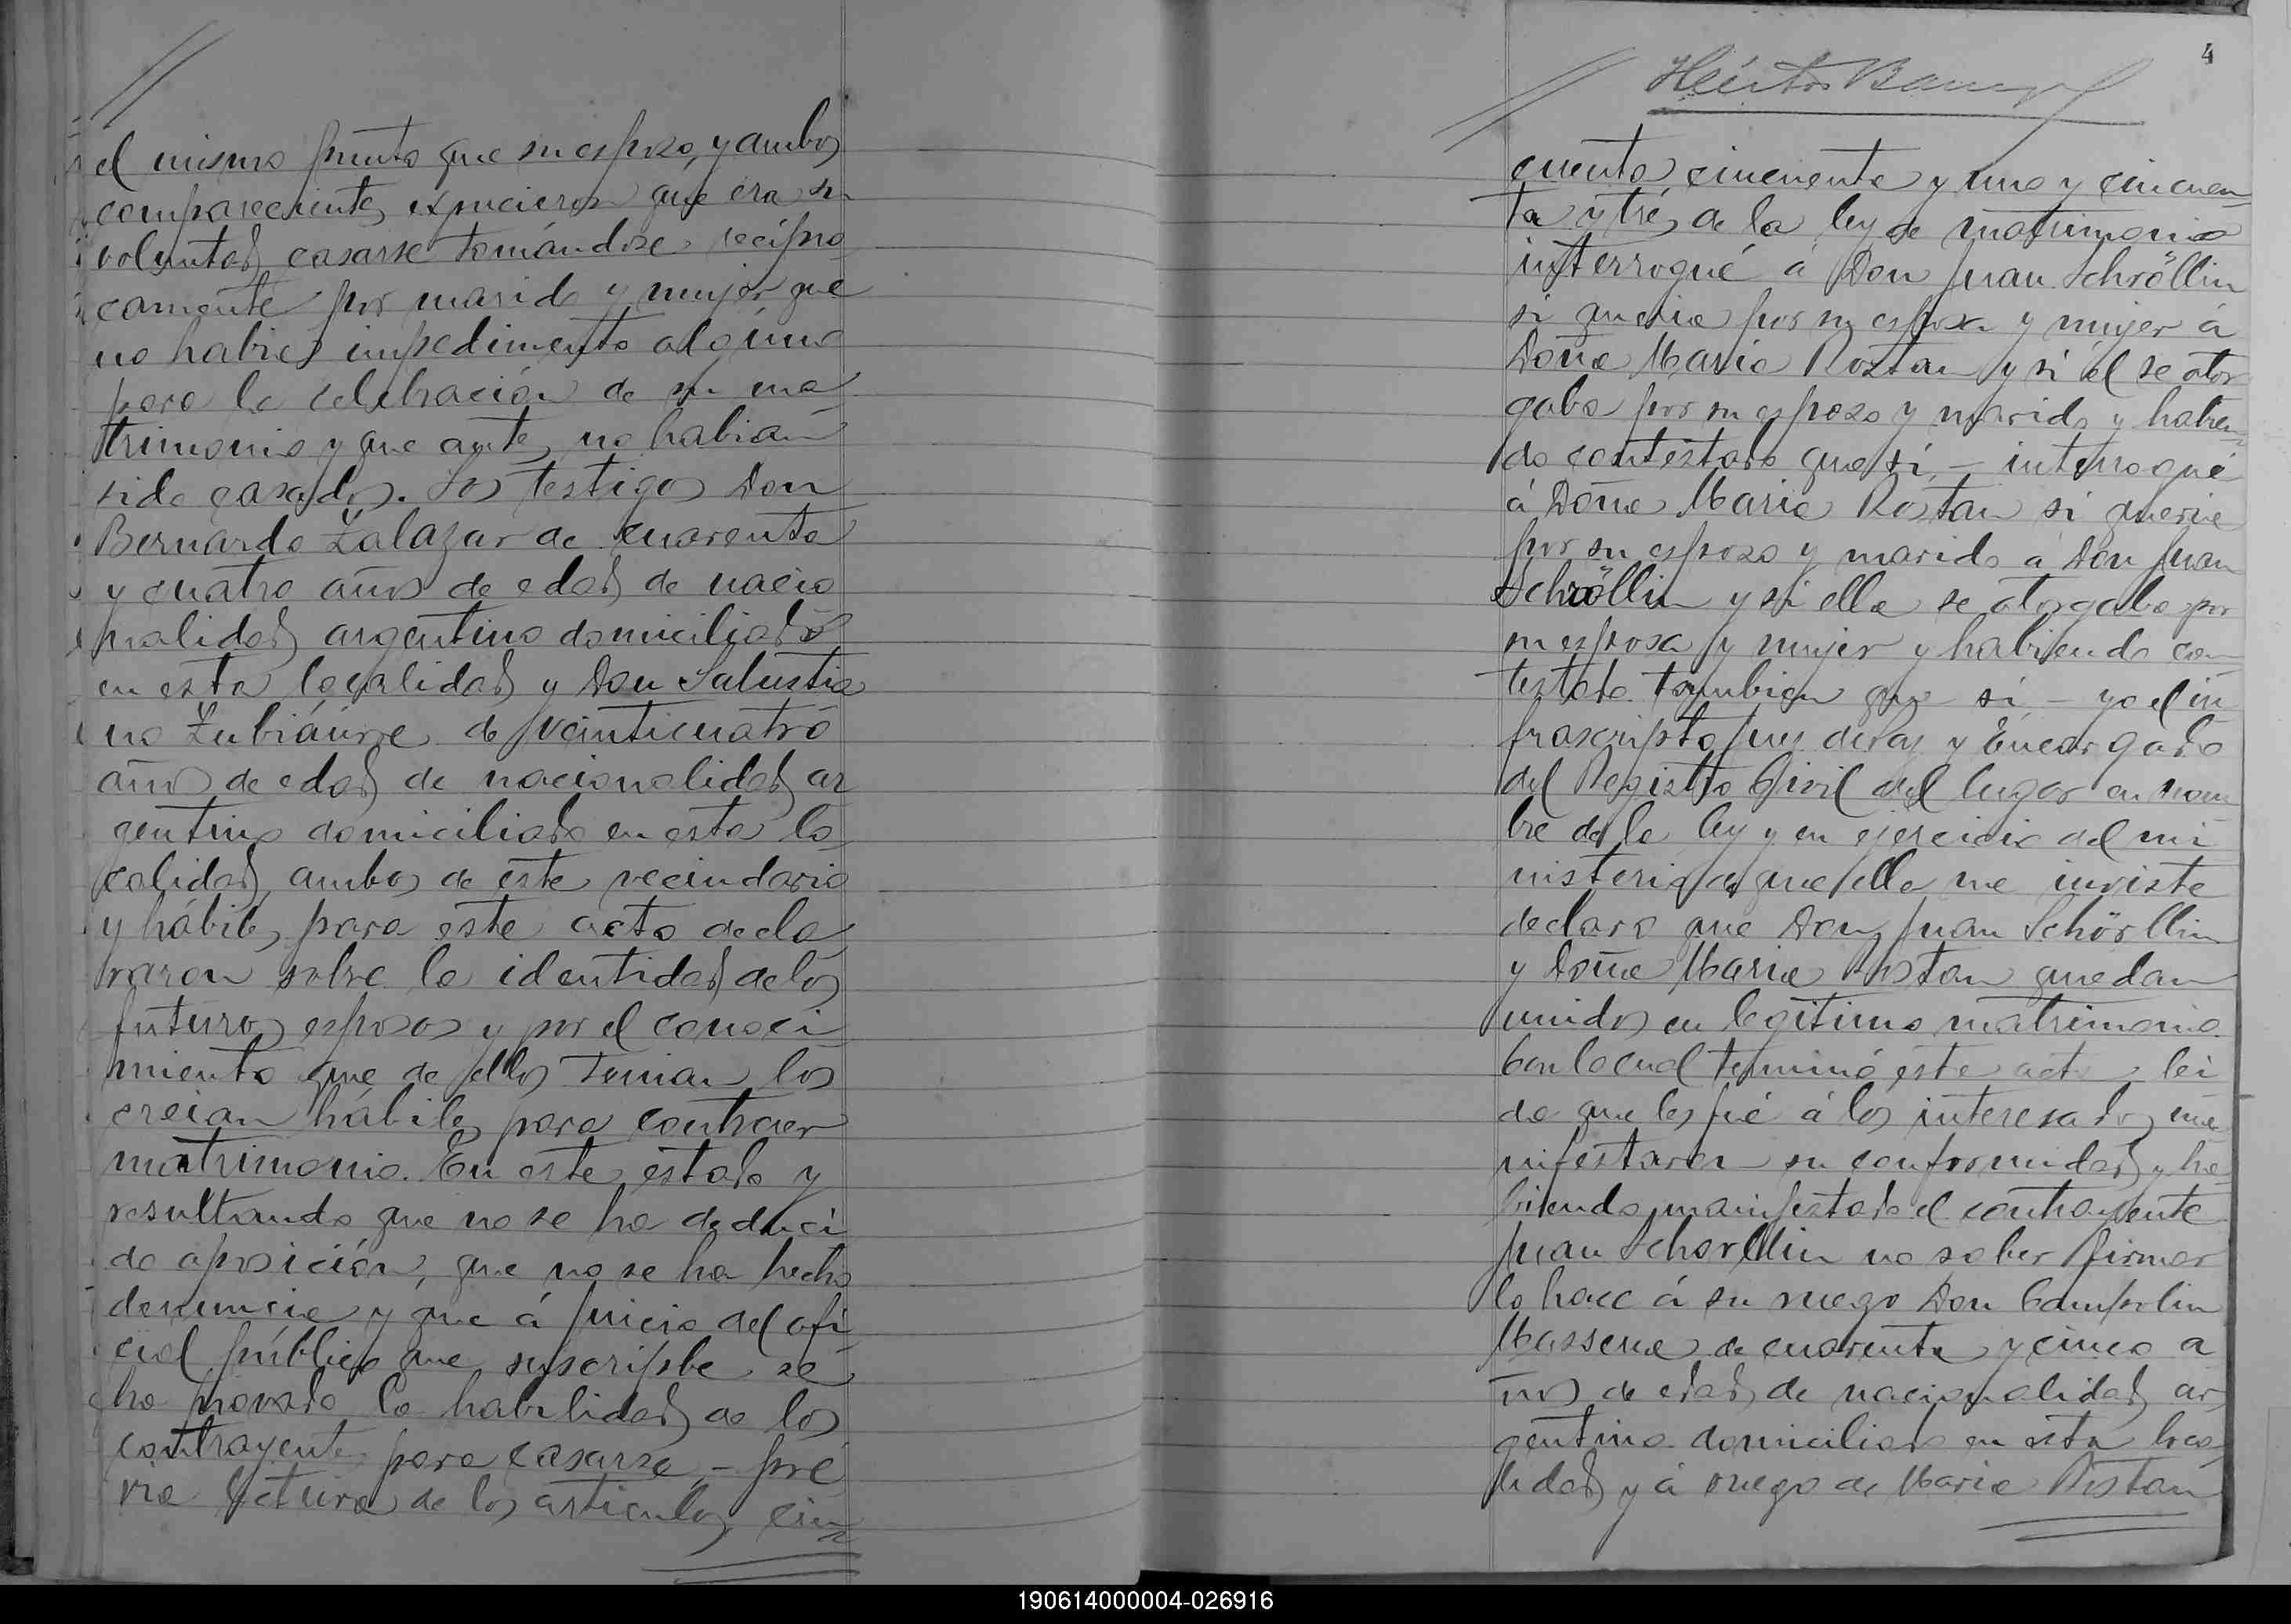 el mismo punto que su esposo, y ambos
comparecientes expucieron que era su
voluntad casarse tomándose recipro
camente por marido y mujer que
no habia impedimento algúno
para la celebración de su ma
trimonio y que antes no habian
sido casados. Los testigos Don
Bernardo Zalazar de cuarenta
y cuatro años de edad de nacio
nalidad argentino domiciliado
en esta localidad y Don Salustia
no Zubiáurre de veinticuatro
años de edad de nacionalidad ar
gentino domiciliado en esta lo
calidad, ambos de este vecindario
y hábiles para este acto decla
raron sobre la identidad de los
futuros esposos y por el conoci
miento que de ellos tenian los
creian hábiles para contraer
matrimonio. En este estado y
resultando que no se ha deduci
do oposición, que no se ha hecho
denuncia y que á juicio del ofi
cial público que suscripbe se
ha provado la habilidad de los
contrayentes para casarse, - pré
via lectura de los articulos cin
4
Héctor
cuenta, cincuenta y uno y cincuen
ta y tres de la ley de matrimonio
interrogué á Don Juan Schröllin
si queria por su esposa y mujer á
Doña Maria Roztan y si él se otor
gaba por su esposo y marido y habien
do contestado que si, - interrogué
á Doña Maria Rostan si queria
por su esposo y marido á Don Juan
Schröllin y si ella se otorgaba por
su esposa y mujer y habiendo con
testado tambien que si - yo el in
frascripto Juez de Paz y Encargado
del Registro Civil del lugar en nom
bre de la ley y en ejercicio del mi
nisterio de que ella me inviste
declaro que Don Juan Schörllin
y Doña Maria Rostan quedan
unidos en legitimo matrimonio.
Con lo cual terminó este acto, lei
do que les fué á los interesados ma
nifestaron su conformidad y ha
biendo manifestado el contrayente
Juan Schorllin no saber firmar
lo hace á su ruego Don Campolin
Massera de cuarenta y cinco a
ños de edad, de nacionalidad ar
gentino domiciliado en esta loca
lidad y á ruego de Maria Rostan
190614000004-026916